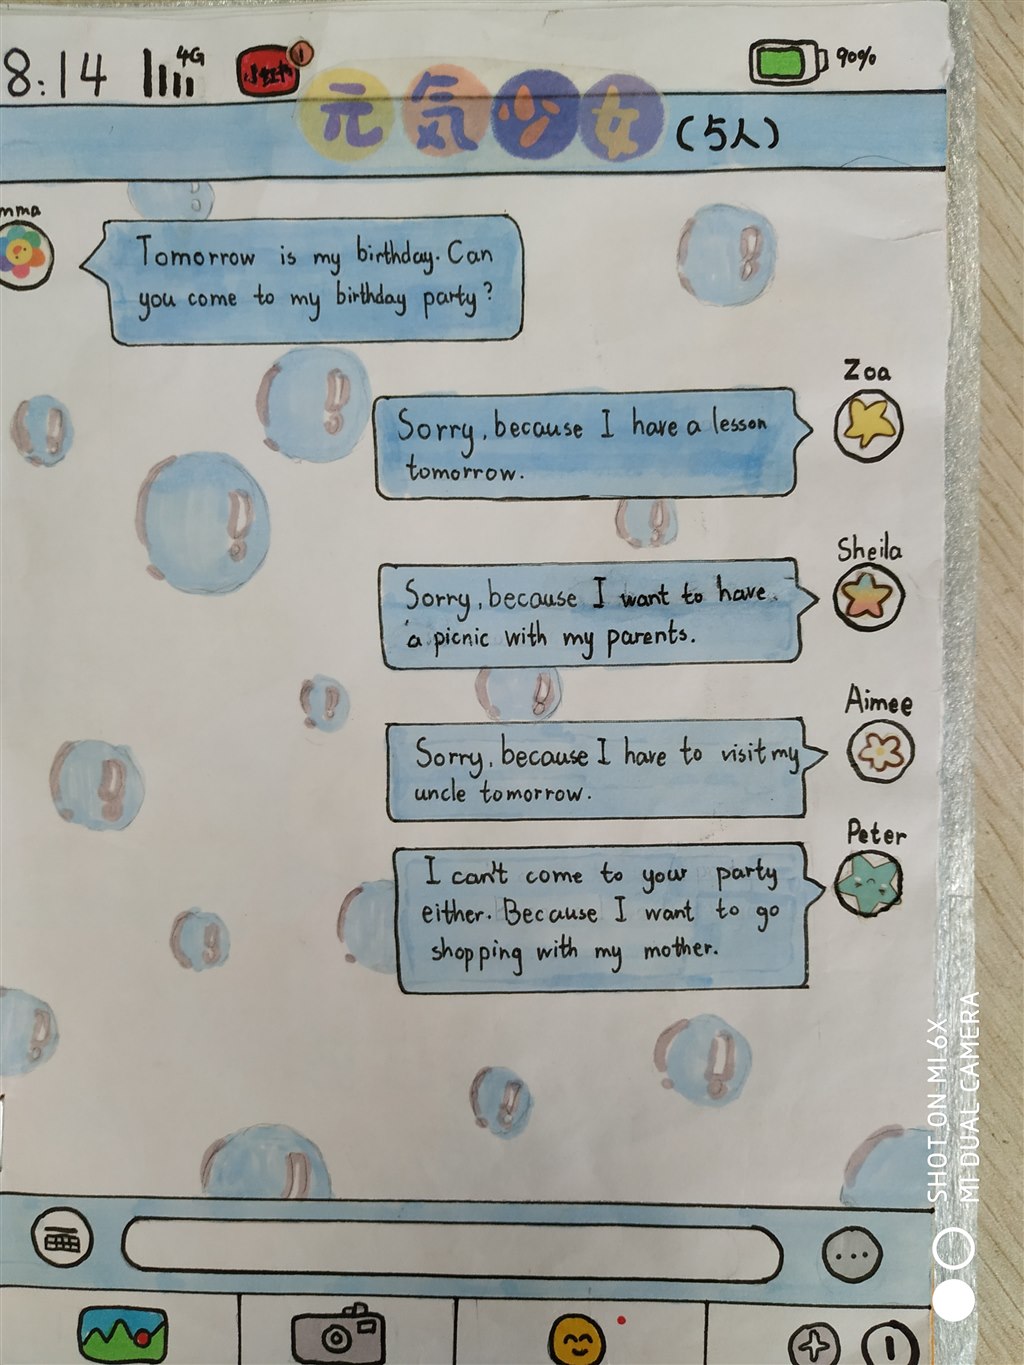 8:14 4G 小红书 1 90%
元気少女 (5人)
mma
Tomorrow is my birthday. Can
you come to my birthday party?
Zoa
Sorry, because I have a lesson
tomorrow.
Sheila
Sorry, because I want to have
a picnic with my parents.
Aimee
Sorry, because I have to visit my
uncle tomorrow.
Peter
I can't come to your party
either. Because I want to go
shopping with my mother.
SHOT ON MI 6X
MI DUAL CAMERA